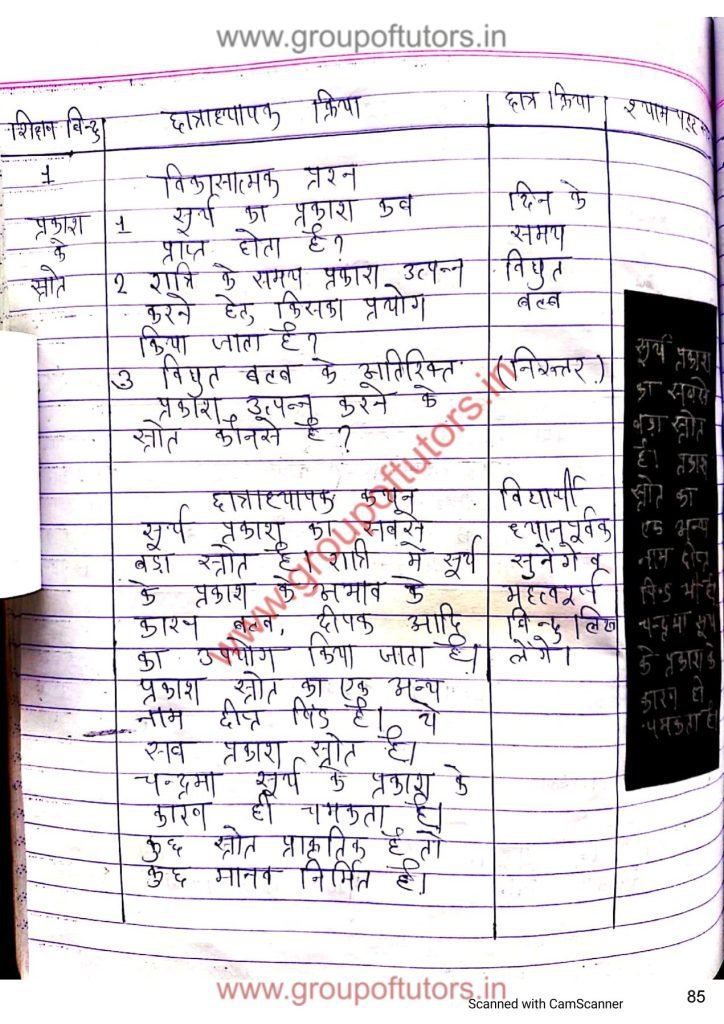 www.groupoftutors.in
शिक्षण बिन्दु
छात्राध्यापक क्रिया
छात्र क्रिया
श्यामपट्ट
1
प्रकाश
के
स्रोत
विकासात्मक प्रश्न
1 सूर्य का प्रकाश कब
प्राप्त होता है?
2 रात्रि के समय प्रकाश उत्पन्न
करने हेतु किसका प्रयोग
किया जाता है?
3 विधुत बल्ब के अतिरिक्त
प्रकाश उत्पन्न करने के
स्रोत कौनसे है?
छात्राध्यापक कथन
सूर्य प्रकाश का सबसे
बड़ा स्त्रोत है। रात्रि में सूर्य
के प्रकाश के अभाव के
कारण बल्ब, दीपक आदि
का उपयोग किया जाता है।
प्रकाश स्त्रोत का एक अन्य
नाम दीप्त पिंड है। ये
सब प्रकाश स्त्रोत है।
चन्द्रमा सूर्य के प्रकाश के
कारण ही चमकता है।
कुछ स्त्रोत प्राकृतिक है तो
कुछ मानव निर्मित है।
दिन के
समय
विधुत
बल्ब
(निरुत्तर)
विद्यार्थी
ध्यानपूर्वक
सुनेंगे व
महत्वपूर्ण
बिन्दु लिख
लेंगे।
सूर्य प्रकाश
का सबसे
बड़ा स्रोत
है। प्रकाश
स्रोत का
एक अन्य
नाम दीप्त
पिंड भी है
चन्द्रमा सूर्य
के प्रकाश के
कारण ही
चमकता है।
www.groupoftutors.in
www.groupoftutors.in
Scanned with CamScanner
85